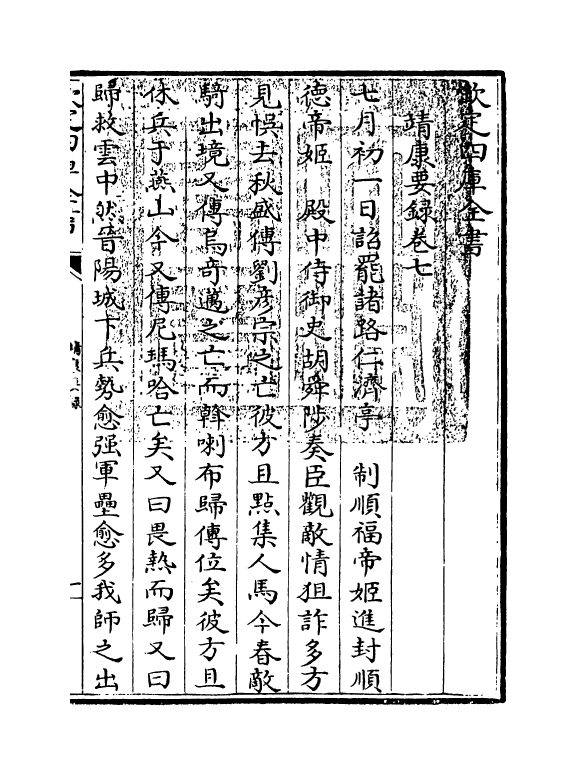 欽定四庫全書
靖康要録卷七
七月初一日詔罷諸路仁濟亭　制順福帝姬進封順
德帝姬　殿中侍御史胡舜陟奏臣觀敵情狙詐多方
見悞去秋盛傳劉彦宗之亡彼方且點集人馬今春敵
騎出境又傳烏奇邁之亡而斡喇布歸傳位矣彼方且
休兵于燕山今又傳尼瑪哈亡矣又曰畏熱而歸又曰
歸救雲中然晉陽城下兵勢愈强軍壘愈多我師之出